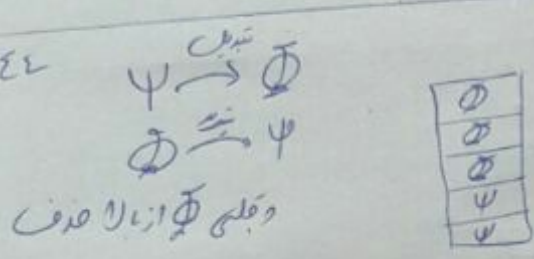 ٤٤
Ψ تبدیل→ Φ
Φ → Ψ
و قبلی Φ از بالا حذف
Φ
Φ
Φ
Ψ
Ψ